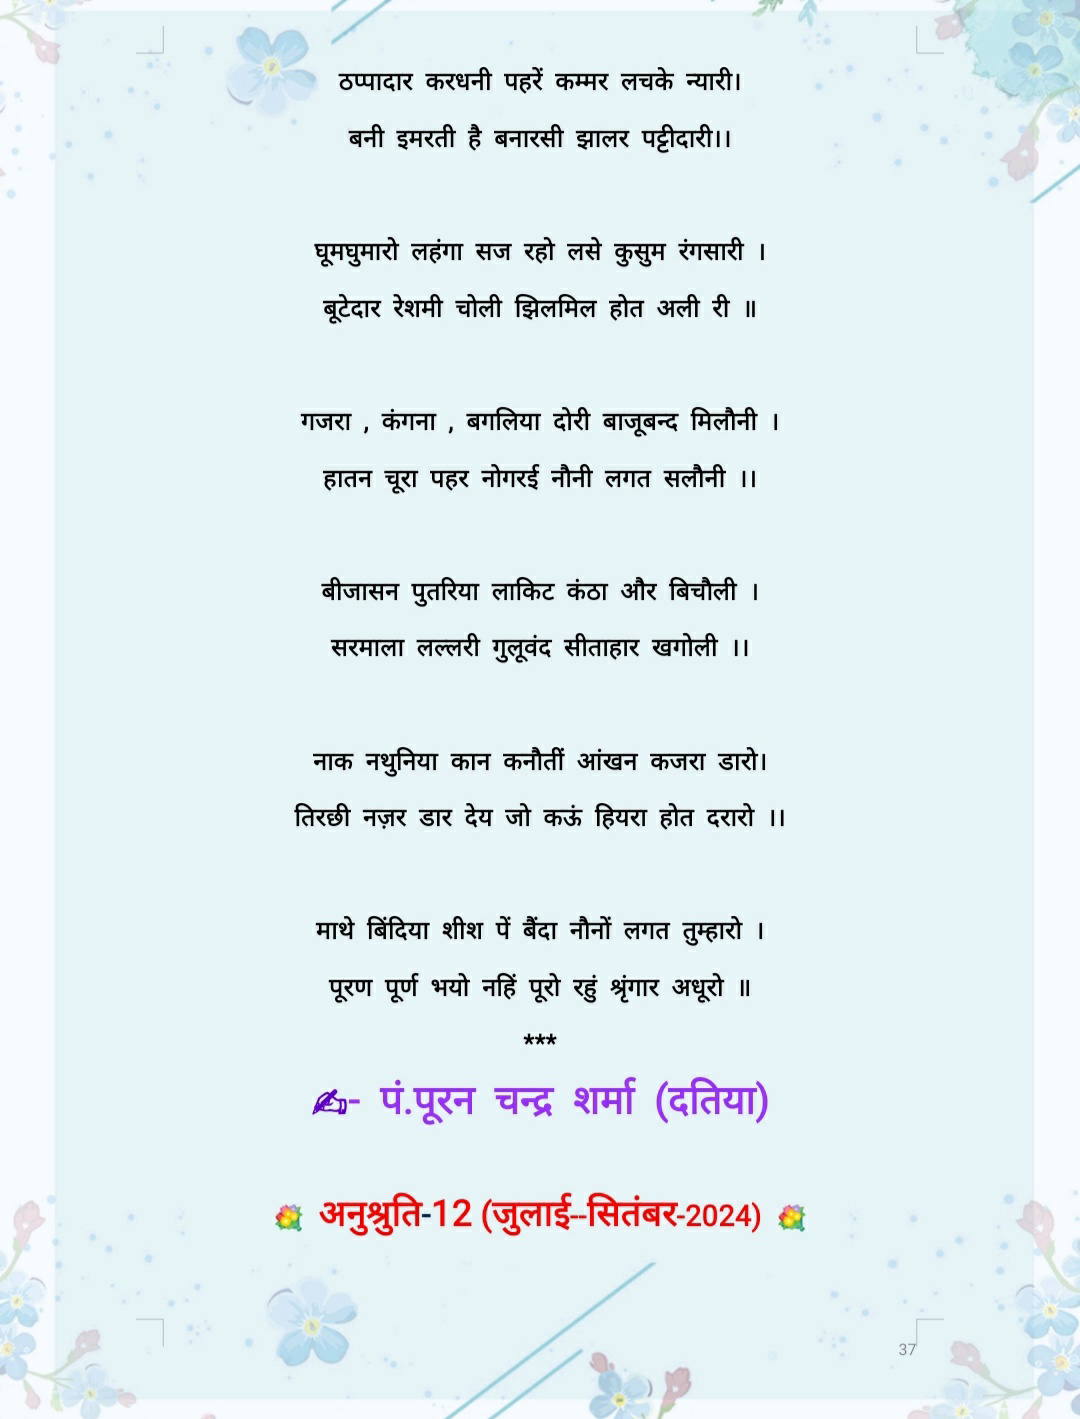 ठप्पादार करधनी पहरें कम्मर लचके न्यारी।
बनी इमरती है बनारसी झालर पट्टीदारी।।
घूमघुमारो लहंगा सज रहो लसे कुसुम रंगसारी ।
बूटेदार रेशमी चोली झिलमिल होत अली री ॥
गजरा , कंगना , बगलिया दोरी बाजूबन्द मिलौनी ।
हातन चूरा पहर नोगरई नौनी लगत सलौनी ।।
बीजासन पुतरिया लाकिट कंठा और बिचौली ।
सरमाला लल्लरी गुलूवंद सीताहार खगोली ।।
नाक नथुनिया कान कनौतीं आंखन कजरा डारो।
तिरछी नज़र डार देय जो कऊं हियरा होत दरारो ।।
माथे बिंदिया शीश पें बैंदा नौनों लगत तुम्हारो ।
पूरण पूर्ण भयो नहिं पूरो रहुं श्रृंगार अधूरो ॥
***
✍️- पं.पूरन चन्द्र शर्मा (दतिया)
💐 अनुश्रुति-12 (जुलाई--सितंबर-2024) 💐
37